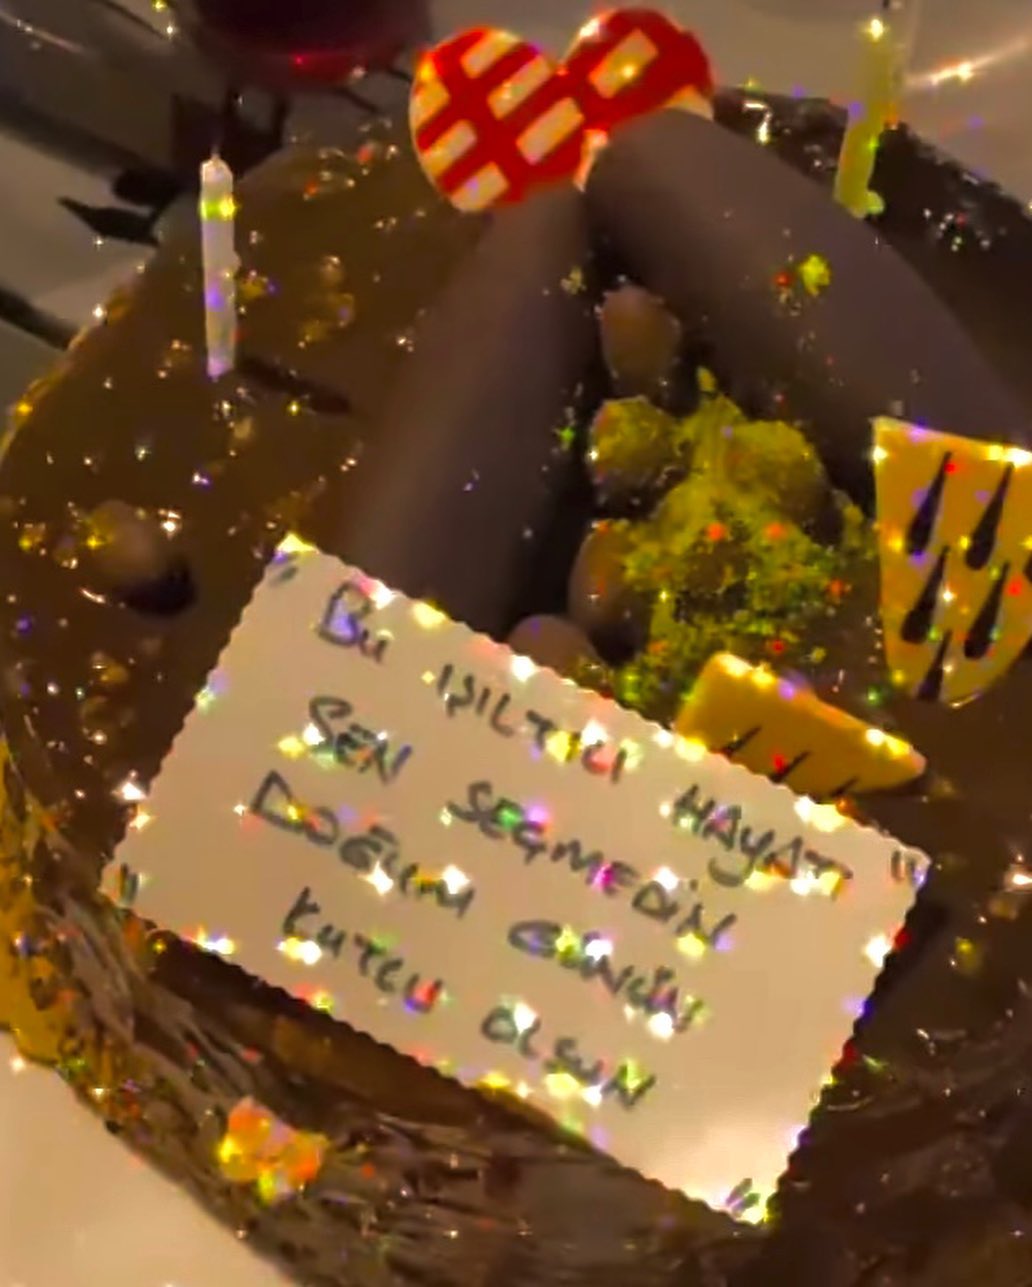 Bu IŞILTILI HAYATI
SEN SEÇMEDİN
DOĞUM GÜNÜN
KUTLU OLSUN